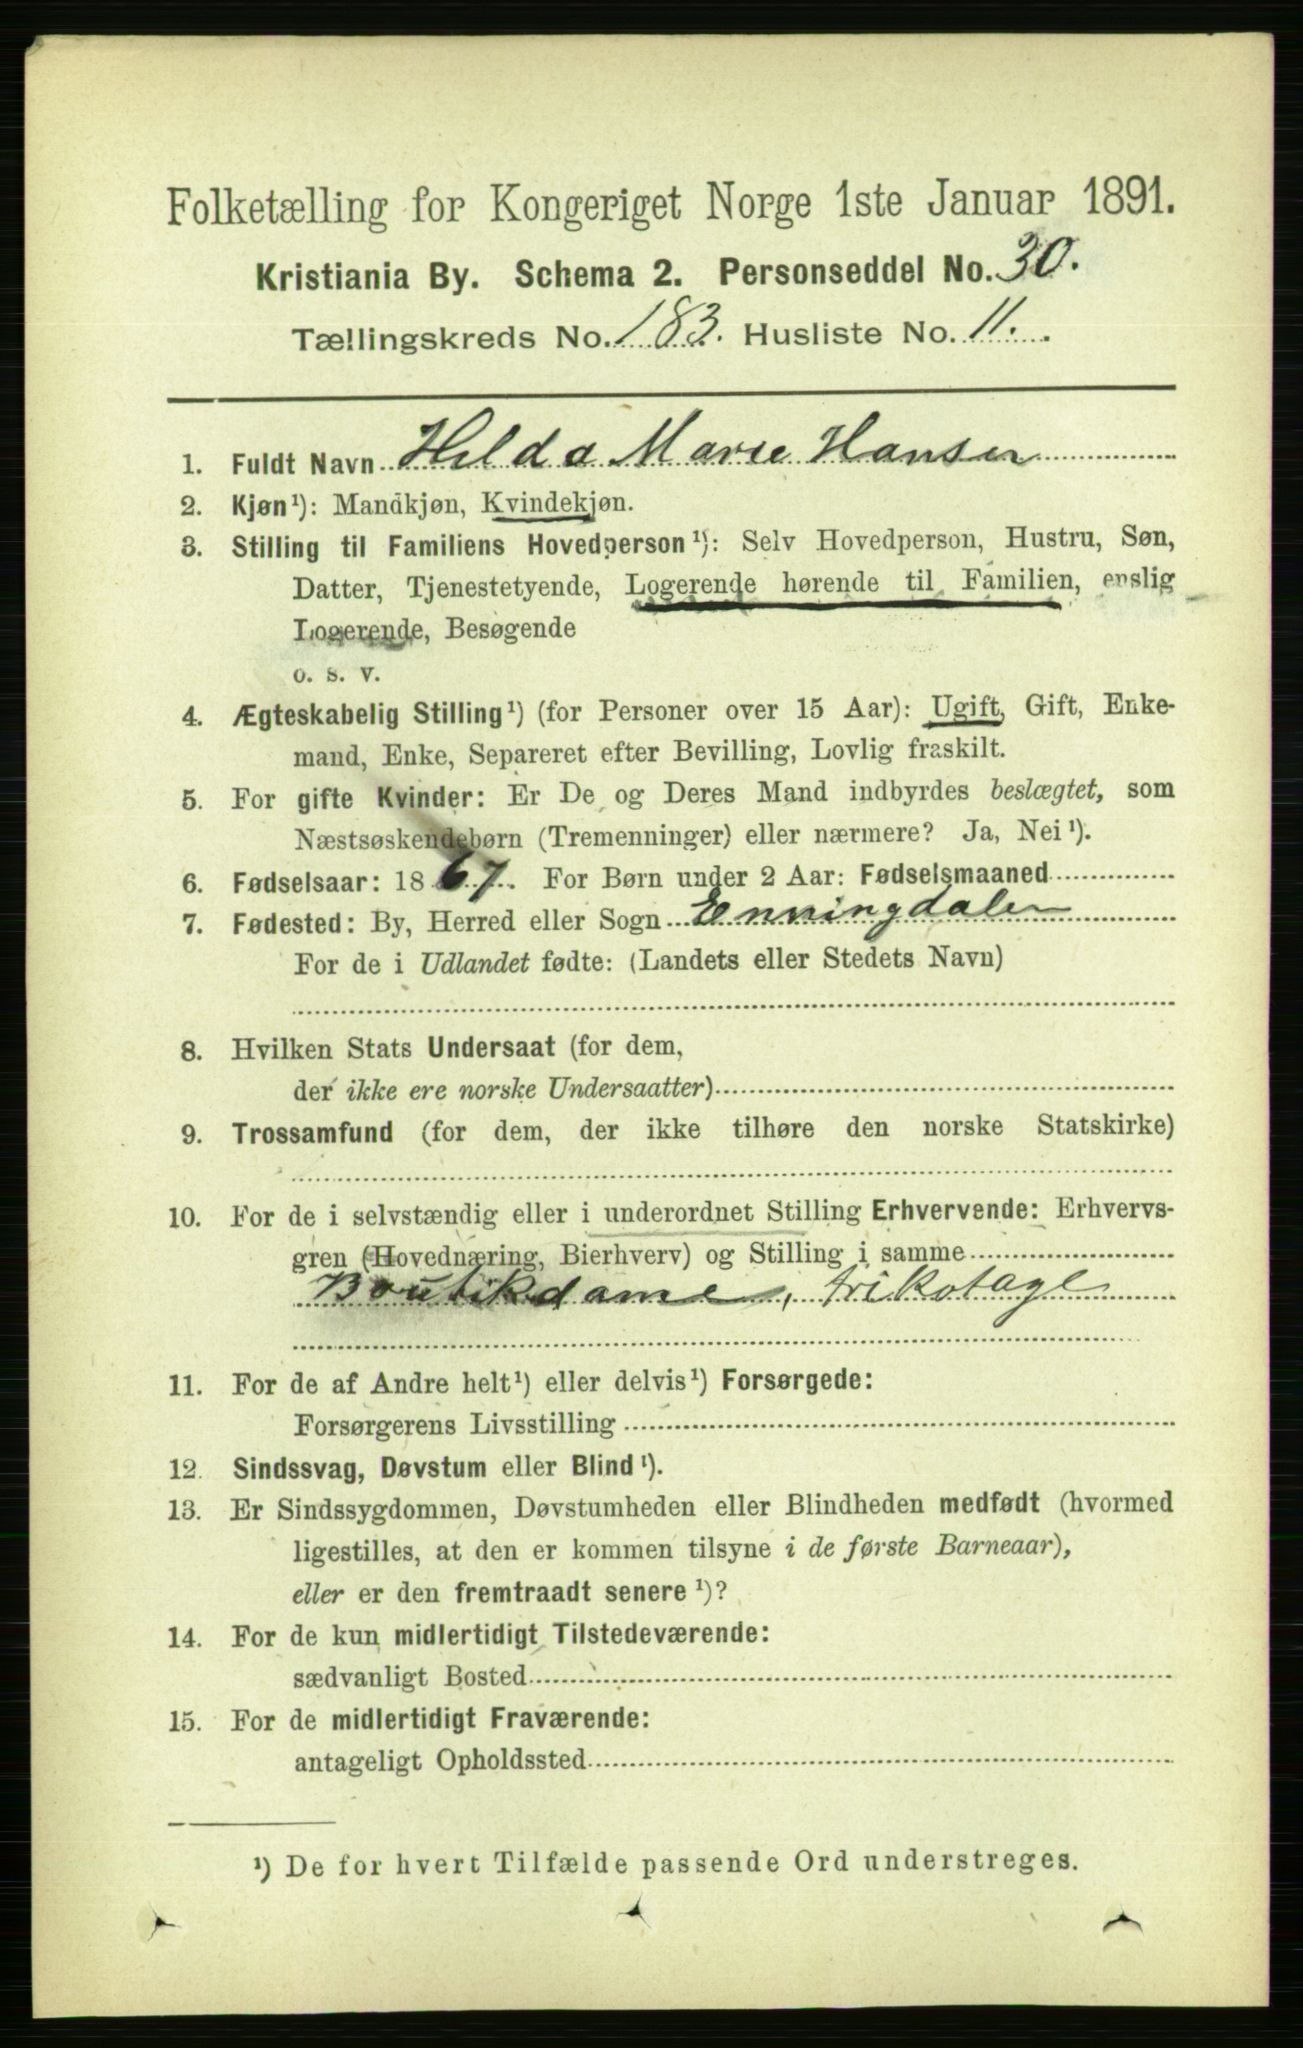 Folketælling for Kongeriget Norge 1ste Januar 1891.
Kristiania By. Schema 2. Personseddel No. 30.
Tællingskreds No. 183. Husliste No. 11.
1. Fuldt Navn Helda Marie Hansen
2. Kjøn¹): Mandkjøn, Kvindekjøn.
3. Stilling til Familiens Hovedperson¹): Selv Hovedperson, Hustru, Søn,
Datter, Tjenestetyende, Logerende hørende til Familien, enslig
Logerende, Besøgende
o. s. v.
4. Ægteskabelig Stilling¹) (for Personer over 15 Aar): Ugift, Gift, Enke-
mand, Enke, Separeret efter Bevilling, Lovlig fraskilt.
5. For gifte Kvinder: Er De og Deres Mand indbyrdes beslægtet, som
Næstsøskendebørn (Tremenninger) eller nærmere? Ja, Nei¹).
6. Fødselsaar: 1867. For Børn under 2 Aar: Fødselsmaaned
7. Fødested: By, Herred eller Sogn Enningdalen
For de i Udlandet fødte: (Landets eller Stedets Navn)
8. Hvilken Stats Undersaat (for dem,
der ikke ere norske Undersaatter)
9. Trossamfund (for dem, der ikke tilhøre den norske Statskirke)
10. For de i selvstændig eller i underordnet Stilling Erhvervende: Erhvervs-
gren (Hovednæring, Bierhverv) og Stilling i samme
Boutikdame, trikotage
11. For de af Andre helt¹) eller delvis¹) Forsørgede:
Forsørgerens Livsstilling
12. Sindssvag, Døvstum eller Blind¹).
13. Er Sindssygdommen, Døvstumheden eller Blindheden medfødt (hvormed
ligestilles, at den er kommen tilsyne i de første Barneaar),
eller er den fremtraadt senere¹)?
14. For de kun midlertidigt Tilstedeværende:
sædvanligt Bosted
15. For de midlertidigt Fraværende:
antageligt Opholdssted
¹) De for hvert Tilfælde passende Ord understreges.